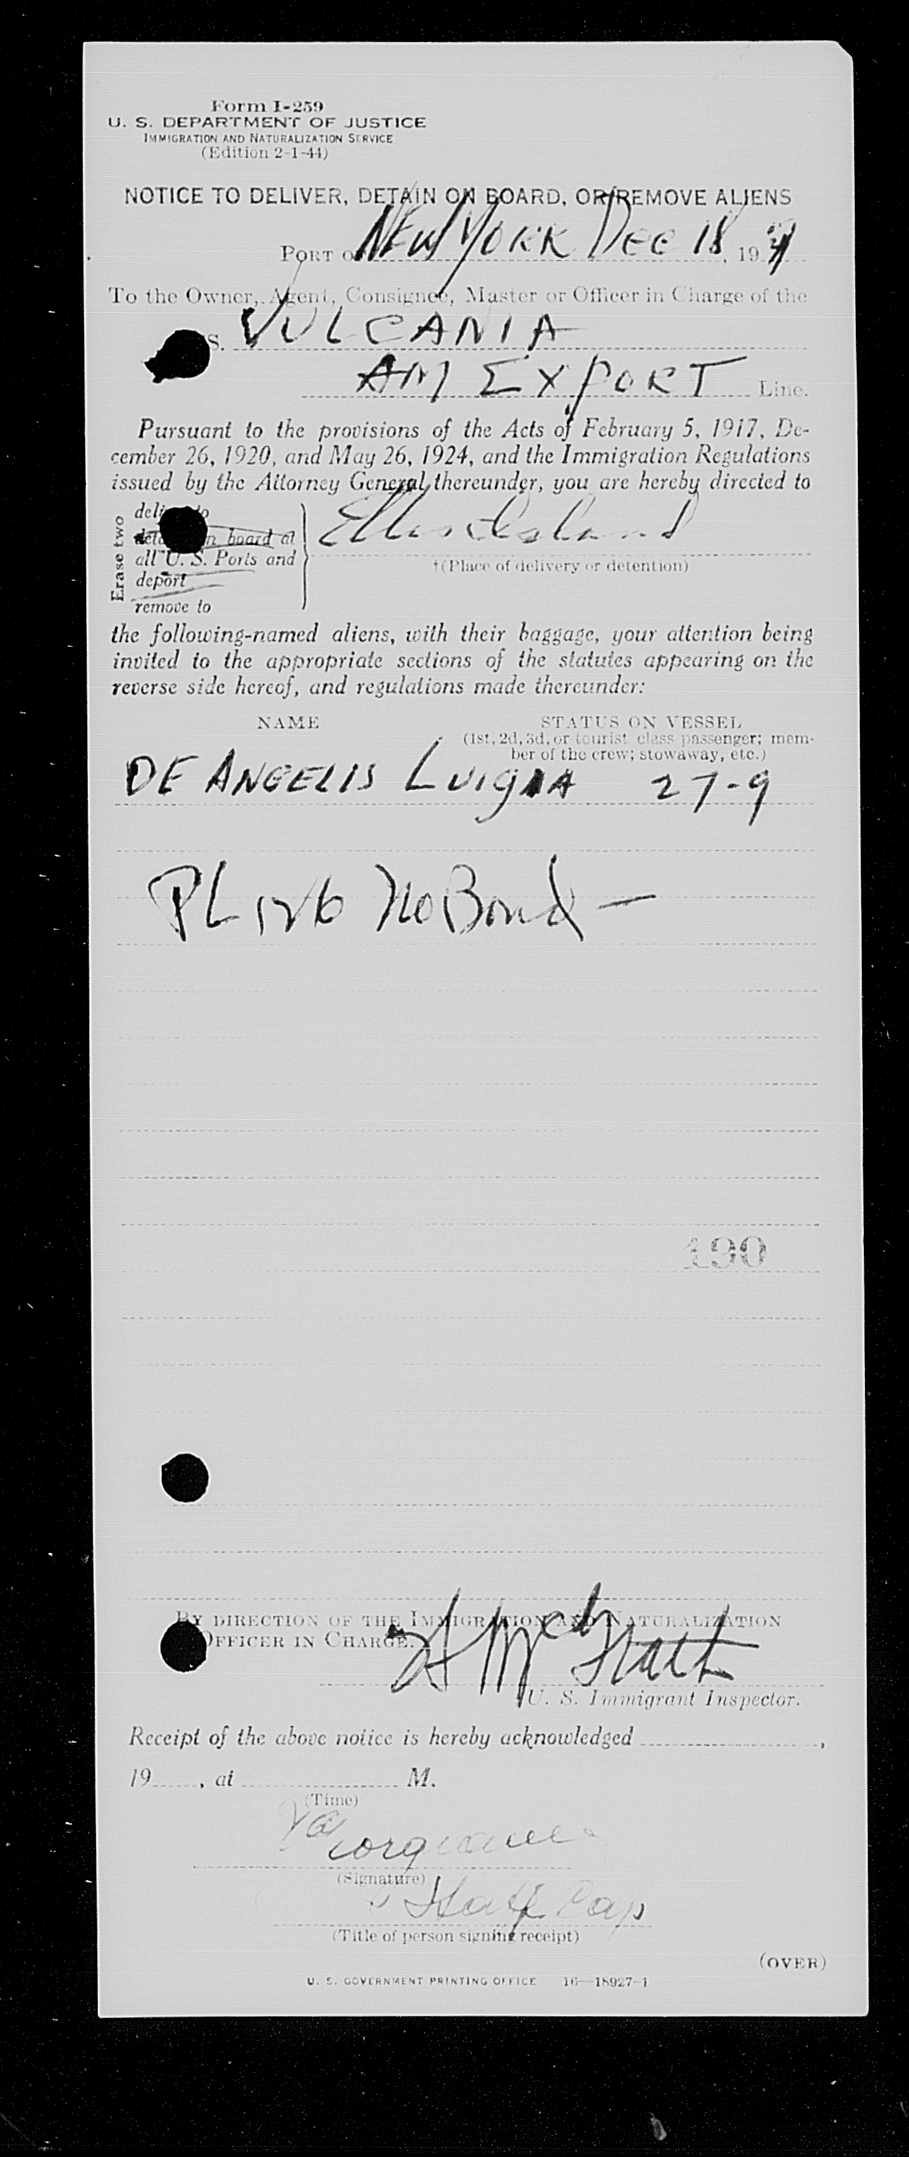 Form I-259
U. S. DEPARTMENT OF JUSTICE
IMMIGRATION AND NATURALIZATION SERVICE
(Edition 2-1-44)
NOTICE TO DELIVER, DETAIN ON BOARD, OR REMOVE ALIENS
PORT of NEW YORK DEC 18, 19
To the Owner, Agent, Consignee, Master or Officer in Charge of the
S. VULCANIA
AM EXPORT Line.
Pursuant to the provisions of the Acts of February 5, 1917, De-
cember 26, 1920, and May 26, 1924, and the Immigration Regulations
issued by the Attorney General thereunder, you are hereby directed to
Erase two
deliver to
detain on board at
all U. S. Ports and
deport
remove to
Ellis Island
†(Place of delivery or detention)
the following-named aliens, with their baggage, your attention being
invited to the appropriate sections of the statutes appearing on the
reverse side hereof, and regulations made thereunder:
NAME STATUS ON VESSEL
(1st, 2d, 3d, or tourist class passenger; mem-
ber of the crew; stowaway, etc.)
DE ANGELIS LUIGIA 27-9
PL No Bond —
190
BY DIRECTION OF THE IMMIGRATION AND NATURALIZATION
OFFICER IN CHARGE.
McGrath
U. S. Immigrant Inspector.
Receipt of the above notice is hereby acknowledged ,
19 , at M.
(Time)
(Signature)
Staff Cap
(Title of person signing receipt)
(OVER)
U. S. GOVERNMENT PRINTING OFFICE 16—18927-1